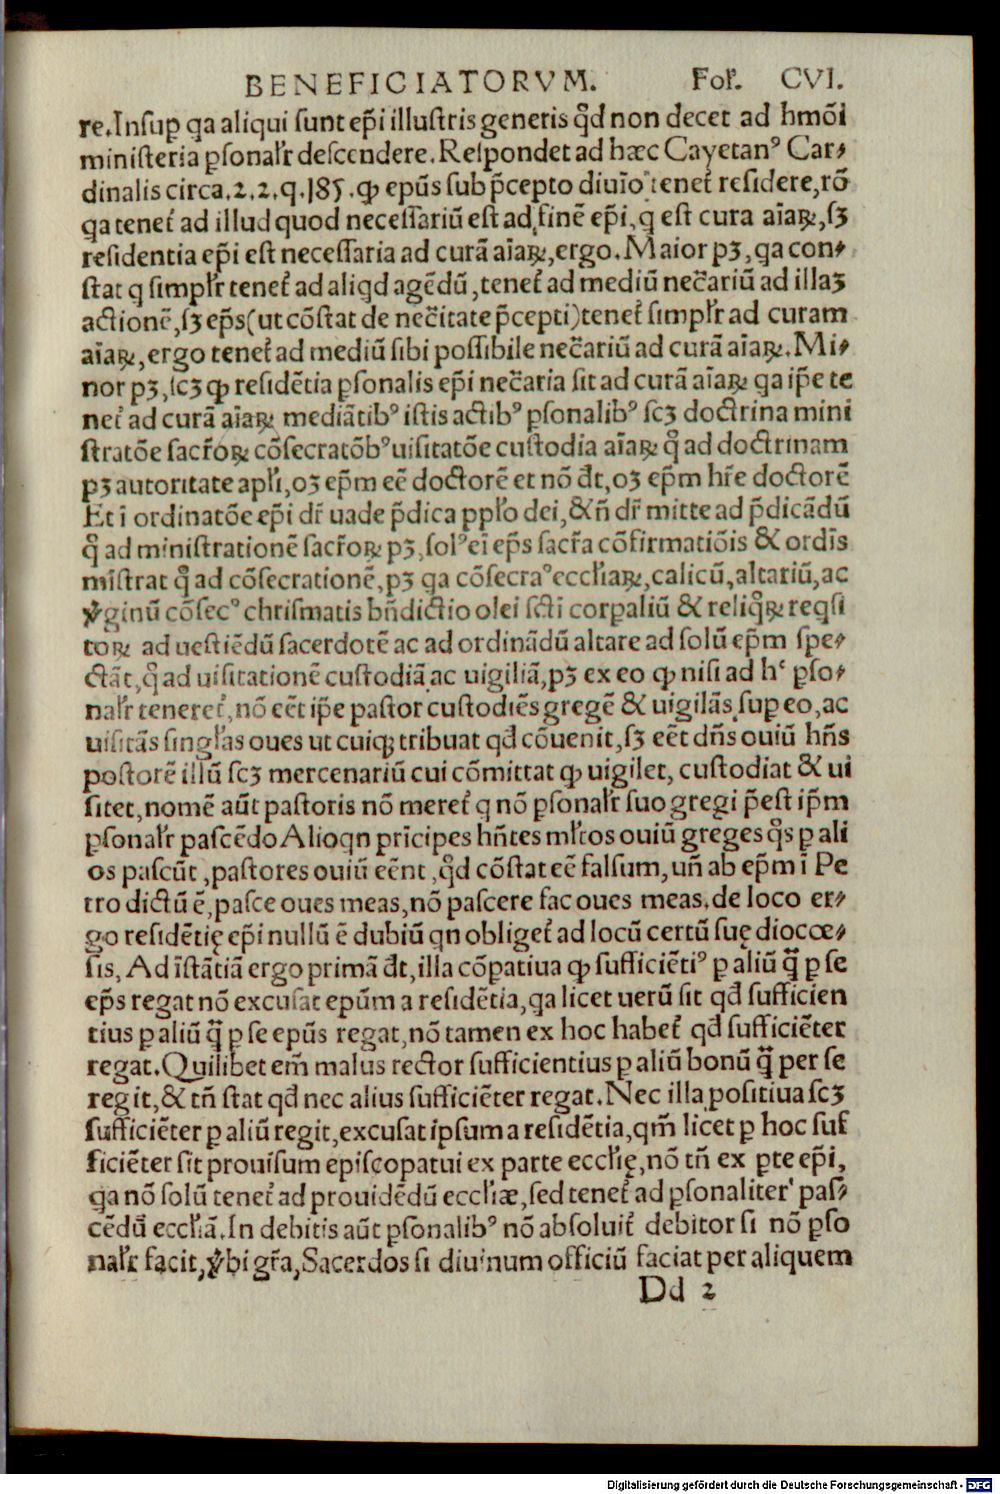 BENEFICIATORVM. Fol͛. CVI.
re. Insuꝑ qa aliqui sunt ep̃i illustris generis q̊d non decet ad hmõi
ministeria ꝑsonal͛r descendere. Respondet ad hæc Cayetanꝰ Car-
dinalis circa .2.2.q.185. ꝙ epũs sub p̃cepto diuĩo tenet͛ residere, rõ
qa tenet͛ ad illud quod necessariũ est ad finẽ ep̃i, q est cura aĩaꝝ, sꝫ
residentia ep̃i est necessaria ad curã aĩaꝝ, ergo. Maior pꝫ, qa con-
stat q simpl͛r tenet͛ ad aliqd agẽdũ, tenet͛ ad mediũ nec̃ariũ ad illaꝫ
actionẽ, sꝫ ep̃s (ut cõstat de nec̃itate p̃cepti) tenet͛ simpl͛r ad curam
aĩaꝝ, ergo tenet͛ ad mediũ sibi possibile nec̃ariũ ad curã aĩaꝝ. Mi-
nor pꝫ, scꝫ ꝙ residẽtia ꝑsonalis ep̃i nec̃aria sit ad curã aĩaꝝ qa ip̃e te
net͛ ad curã aĩaꝝ mediãtibꝰ istis actibꝰ ꝑsonalibꝰ scꝫ doctrina mini
stratõe sacr͛oꝝ cõsecratõbꝰ uisitatõe custodia aĩaꝝ q̊ ad doctrinam
pꝫ autoritate apl͛i, oꝫ ep̃m eẽ doctorẽ et nõ đt, oꝫ ep̃m hr̃e doctorẽ
Et ĩ ordinatõe ep̃i dr̃ uade p̃dica ppl͛o dei, & ñ dr̃ mitte ad p̃dicãdũ
q̊ ad ministrationẽ sacr͛oꝝ pꝫ, solꝰ eĩ ep̃s sacr͛a cõfirmatiõis & ordĩs
mĩstrat q̊ ad cõsecrationẽ, pꝫ qa cõsecraꝰ eccl͛iaꝝ, calicũ, altariũ, ac
ꝟginũ cõsecꝰ chrismatis bñdictio olei sc̃ti corꝑaliũ & reliq̊ꝝ reqsi
toꝝ ad uestiẽdũ sacerdotẽ ac ad ordinãdũ altare ad solũ ep̃m spe-
ctãt, q̊ ad uisitationẽ custodiã ac uigiliã, pꝫ ex eo ꝙ nisi ad hᶜ ꝑso-
nal͛r teneret͛, nõ eẽt ip̃e pastor custodiẽs gregẽ & uigilãs suꝑ eo, ac
uisitãs singl͛as oues ut cuiqꝫ tribuat qđ cõuenit, sꝫ eẽt dñs ouiũ hñs
postorẽ illũ scꝫ mercenariũ cui cõmittat ꝙ uigilet, custodiat & ui
sitet, nomẽ aũt pastoris nõ meret͛ q nõ ꝑsonal͛r suo gregi p̃est ip̃m
ꝑsonal͛r pascẽdo Alioqn prĩcipes hñtes ml͛tos ouiũ greges q̊s ꝑ ali
os pascũt, pastores ouiũ eẽnt, q̊d cõstat eẽ falsum, uñ ab ep̃m ĩ Pe
tro dictũ ẽ, pasce oues meas, nõ pascere fac oues meas, de loco er-
go residẽtię ep̃i nullũ ẽ dubiũ qn obliget͛ ad locũ certũ suę diocœ-
sis, Ad ĩstãtiã ergo primã đt, illa cõpatiua ꝙ sufficiẽtiꝰ ꝑ aliũ q̃ꝫ ꝑ se
ep̃s regat nõ excusat epũm a residẽtia, qa licet uerũ sit qđ sufficien
tius ꝑ aliũ q̃ꝫ ꝑ se epũs regat, nõ tamen ex hoc habet͛ qđ sufficiẽter
regat. Quilibet em̃ malus rector sufficientius ꝑ aliũ bonũ q̃ꝫ per se
regit, & tñ stat qđ nec alius sufficiẽter regat. Nec illa positiua scꝫ
sufficiẽter ꝑ aliũ regit, excusat ipsum a residẽtia, qm̃ licet ꝑ hoc suf
ficiẽter sit prouisum episcopatui ex parte eccl͛ię, nõ tñ ex ꝑte ep̃i,
qa nõ solũ tenet͛ ad prouidẽdũ eccl͛iæ, sed tenet͛ ad ꝑsonaliter pas-
cẽdũ eccl͛iã. In debitis aũt ꝑsonalibꝰ nõ absoluit͛ debitor si nõ ꝑso
nal͛r facit, ꝟbi gr͛a, Sacerdos si diuinum officiũ faciat per aliquem
Dd 2
Digitalisierung gefördert durch die Deutsche Forschungsgemeinschaft - DFG